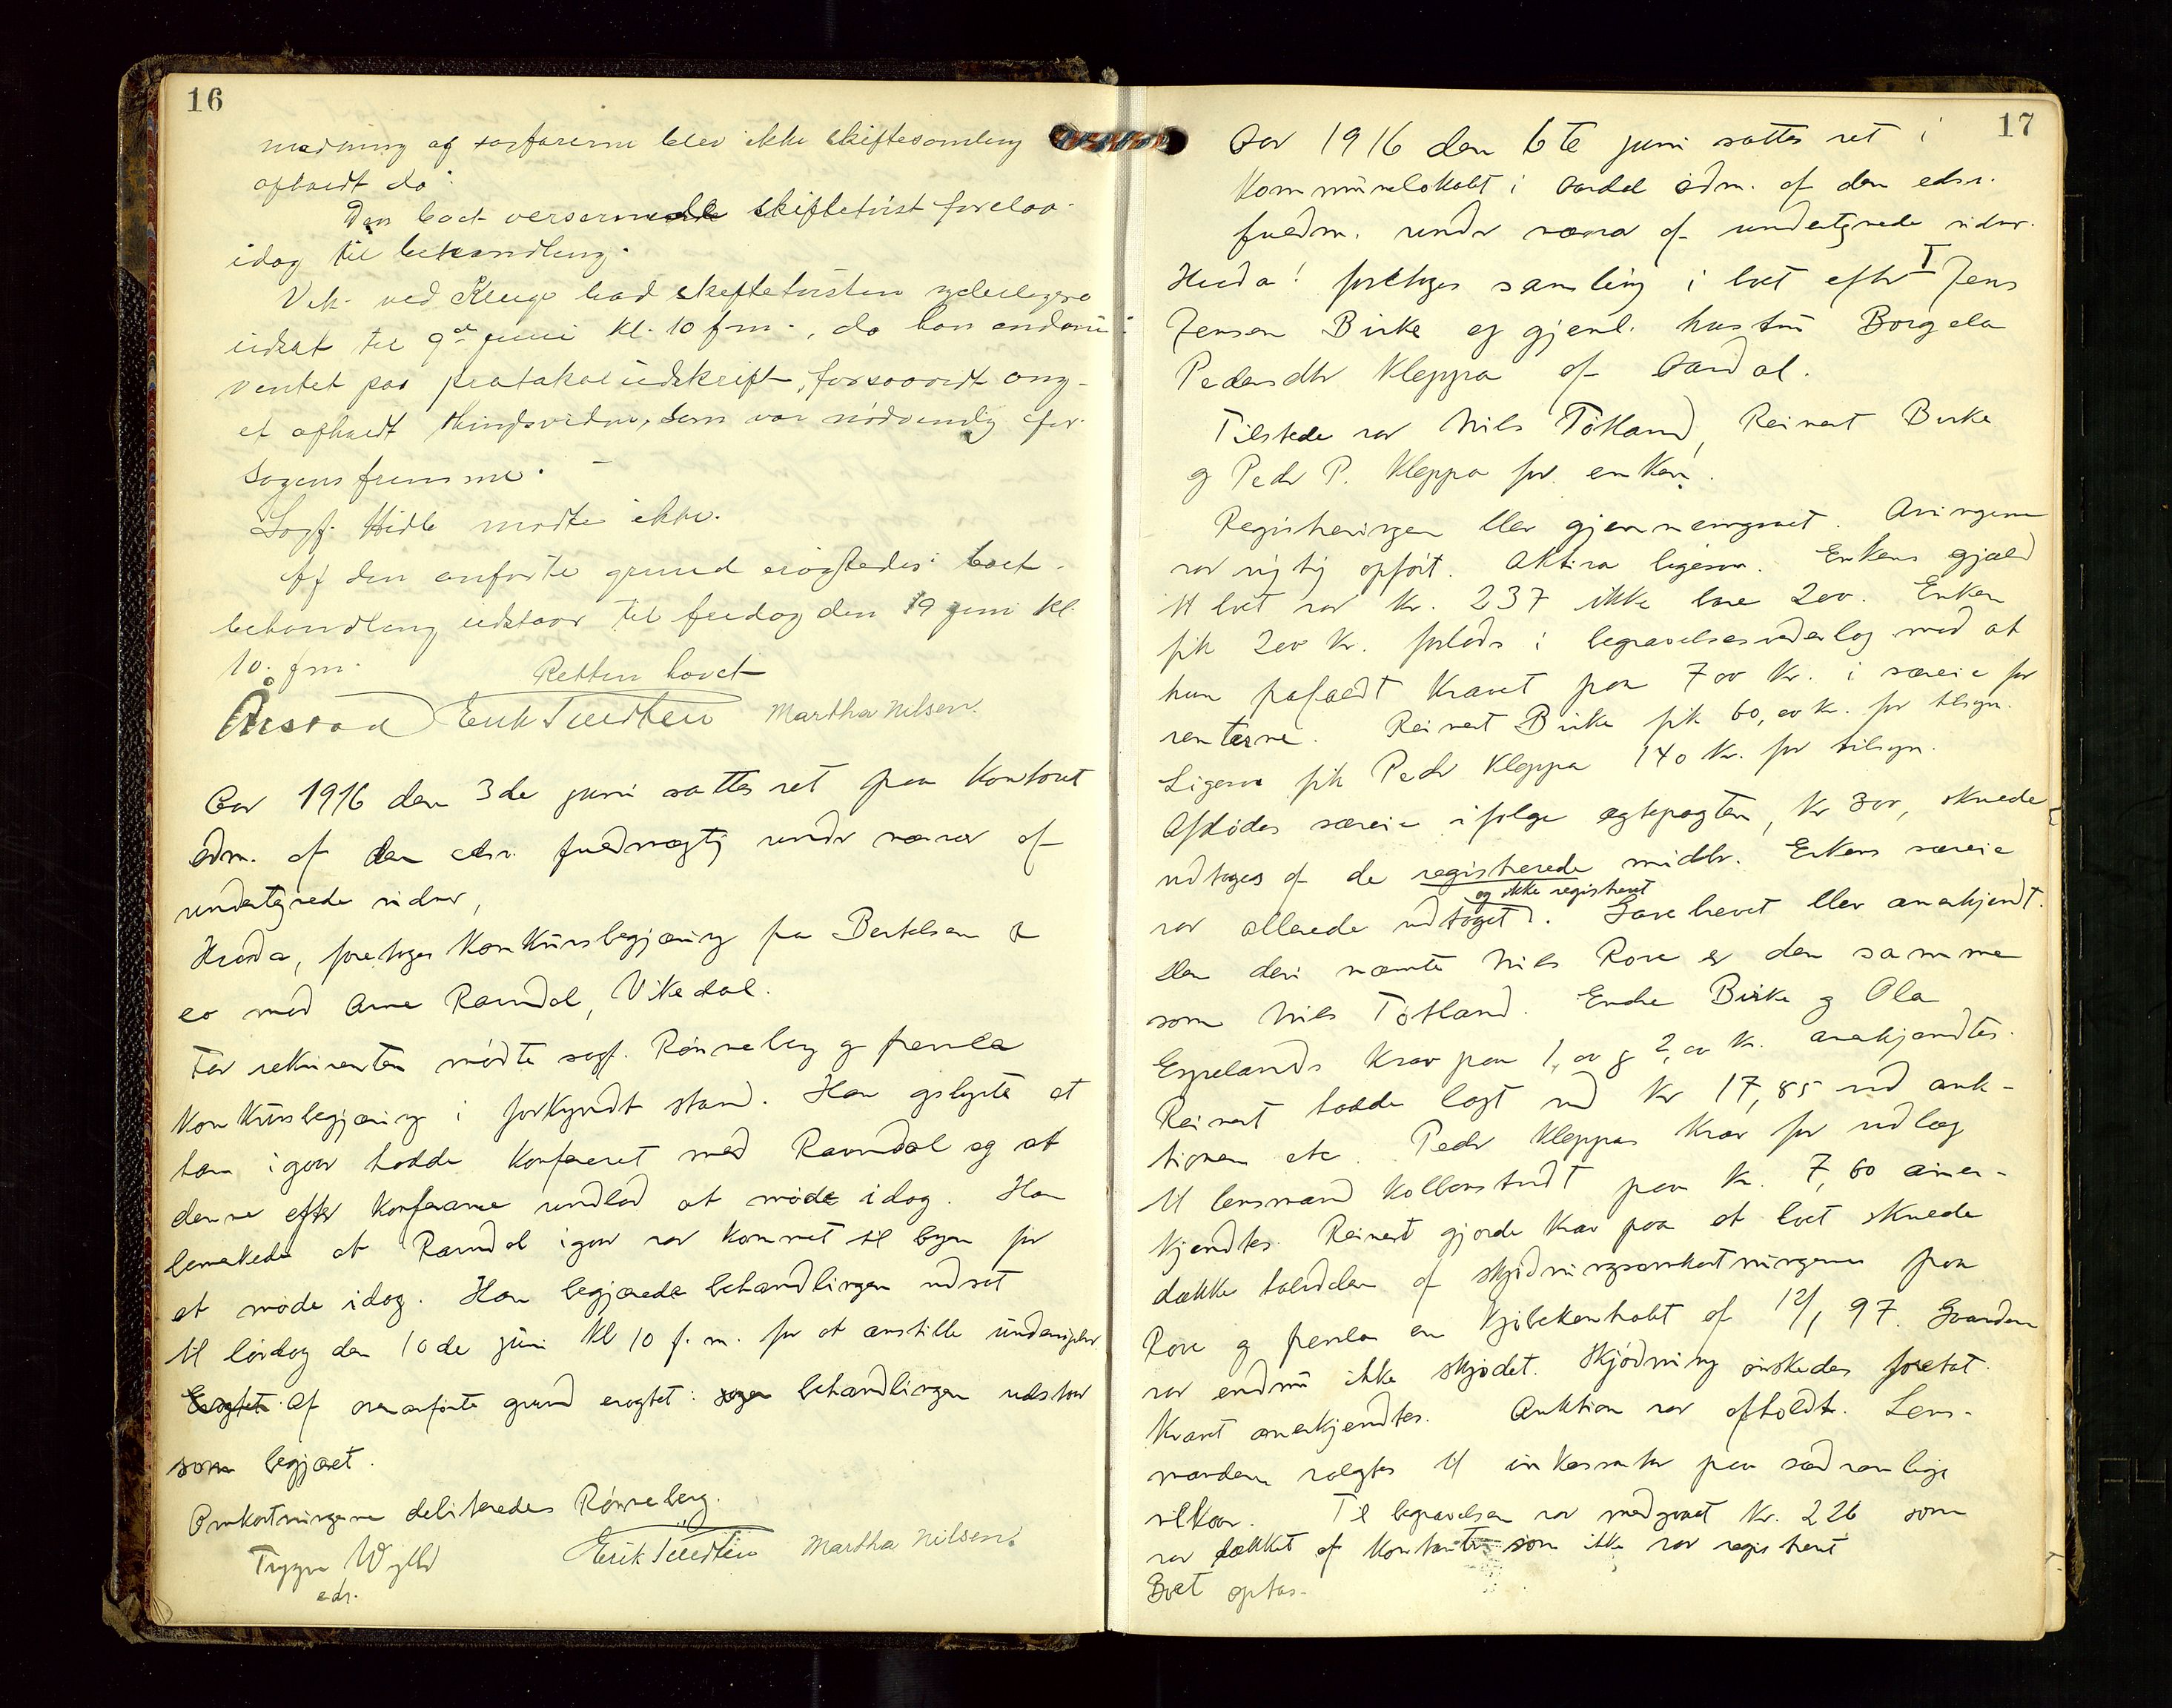 16
mødning af sagførerne blev ikke skiftesamling
afholdt da.
Den boet verserende skiftetvist forelaa
idag til behandling.
Vek. ved Kluge bad skiftetvisten yderligere
udsat til 9de juni kl. 10 fm., da han endnu
ventet paa protokoludskrift, forsaavidt ang.
et afholdt thingsvidne, som var nödvendig for
sagens fremme.
Sagf. Hidle mødte ikke.
Af den anførte grund eragtedes: boet
behandling udstaar til fredag den 9 juni kl.
10. fm.
Retten hævet
Årstad Erik Tuedten Martha Nilsen.
Aar 1916 den 3de juni sattes ret paa kontoret
adm. af den edsv. fuldmægtig under nærvær af
undertegnede vidner,
Hvorda, foretoges konkursbegjæring fra Bertelsen &
co mod Arne Ravndal, Vikedal.
For rekvirenten mødte sagf. Rønneberg og fremla
konkursbegjæring i forkyndt stand. Han oplyste at
han igaar hadde konfereret med Ravndal og at
denne efter konferance undlod at møde idag. Han
bemerkede at Ravndal igaar var kommet til byen for
at møde idag. Han begjærede behandlingen udsat
til lørdag den 10de juni kl 10 f. m. for at anstille undersøgelser
Eragtet Af ovenanførte grund eragtet: sagen behandlingen udstaar
som begjæret.
Omkostningerne debiteredes Rønneberg.
Trygve Wyller Erik Tuedten Martha Nilsen.
edsv.
17
Aar 1916 den 6te juni sattes ret i
Kommunelokalet i Aardal adm. af den edsv.
fuldm. under nærvær af undertegnede vidner.
Hvorda! foretoges samling i boet efter I Jens
Jensen Birke og gjenl. hustru Borgela
Pedersdtr Kleppa af Aardal.
Tilstede var Nils Tøtland, Reinert Birke
og Peder P. Kleppa for enken.
Registreringen blev gjennemgaaet. Arvingene
var rigtig opført. Aktiva ligesaa. Enkens gjæld
til boet var kr. 237 ikke bare 200. Enken
fik 200 kr. forlods i begravelsesvederlag mod at
hun frafaldt kravet paa 700 kr. i særeie for
renterne. Reinert Birke fik 60,00 kr. for tilsyn.
Ligesaa fik Peder Kleppa 140 kr. for tilsyn.
Afdødes særeie ifølge ægtepagten, kr 300, skulde
udtages af de registrerede midler. Enkens særeie
var allerede udtaget og ikke registreret. Gavebrevet blev anerkjendt.
Den deri nævnte Nils Rore er den samme
som Nils Tøtland. Endre Birke og Ola
Espelands krav paa 1,00 og 2,00 kr. anerkjendtes.
Reinert hadde lagt ud kr 17,85 ved auk-
tionen etc. Peder Kleppas krav for udlæg
til lensmand Kolbenstvedt paa kr. 7,60 aner-
kjendtes. Reinert gjorde krav paa at boet skulde
dække halvdelen af skjødningsomkostningerne paa
Rore og fremla en kjøbekontrakt af 12/1 97. Gaarden
var endnu ikke skjødet. Skjødning ønskedes foretat.
Kravet anerkjendtes. Auktion var afholdt. Lens-
manden valgtes til inkassator paa sædvanlige
vilkaar. Til begravelsen var medgaaet kr. 226 som
var dækket af kontanter som ikke var registreret
Boet optas.